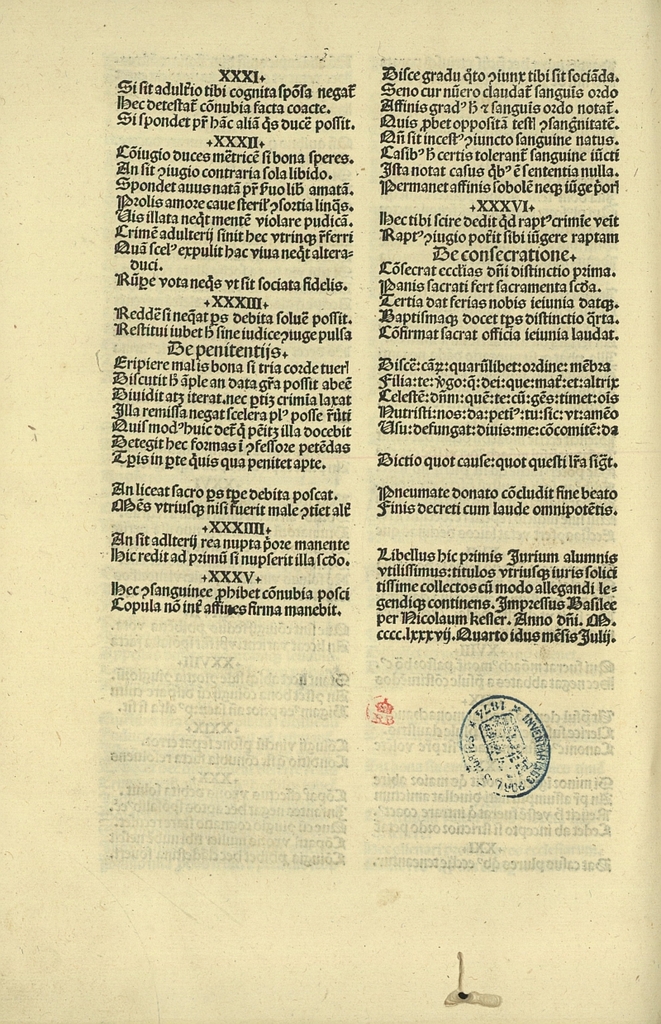 XXXI.
Si sit adult̄io tibi cognita spōsa negat̄
Hec detestat̄ cōnubia facta coacte.
Si spondet pr̄ hāc aliā q̄s ducē possit.
XXXII.
Cōiugio duces mētricē si bona speres.
An sit ꝯiugio contraria sola libido.
Spondet auus natā pr̄ amatā.
Prolis amore caue ꝯsortia linq̄s.
Uis illata neq̄t mentē violare pudicā.
Crimē adulterij sinit hec vtrinqꝫ r̄ferri
Quā scelꝰ expulit hac viua neq̄t altera-
duci.
Rūꝑe vota neq̄s vt sit sociata fidelis.
XXXIII.
Reddē si neq̄at ꝑs debita soluē possit.
Restitui iubet ħ sine iudice ꝯiuge pulsa
De penitentijs.
Eripiere malis bona si tria corde tuerl
Discutit ħ āple an data gr̄a possit abeē
Diuidit atꝫ iterat.nec ꝑtiꝫ crimīa laxat
Illa remissa negat scelera plꝰ posse r̄ūti
Quis modꝰ huic det̄ q̄ pēitꝫ illa docebit
Detegit hec formas ī ꝯfessore petēdas
Tꝑis in ꝑte q̄uis qua penitet apte.
An liceat sacro ꝑs tꝑe debita poscat.
Mēs vtriusqꝫ nisi fuerit male
XXXIIII
An sit adl̄terij rea nupta p̄ore manente
Hic redit ad primū si nupserit illa scd̄o.
XXXV.
Hec ꝯsanguinee ꝓhibet cōnubia posci
Copula nō īnt̄ affines firma manebit.
Disce gradu q̄to ꝯiunx tibi sit sociāda.
Seno cur nūero claudat̄ sanguis ordo
Affinis gradꝰ ħ ⁊ sanguis ordo notat̄.
Quis ꝓbet oppositā ꝯsanḡnitatē.
Qn̄ sit incestꝰ ꝯiuncto sanguine natus.
Casibꝰ ħ certis tolerant̄ sanguine iūcti
Ista notat casus q̄bꝰ ē sententia nulla.
Permanet affinis sobolē neqꝫ iūge
XXXVI.
Hec tibi scire dedit q̄d raptꝰ crimīe veīt
Raptꝰ ꝯiugio pot̄it sibi iūgere raptam
De consecratione.
Cōsecrat ecclias dn̄i distinctio prima.
Panis sacrati fert sacramenta scd̄a.
Tertia dat ferias nobis ieiunia datqꝫ.
Baptismaqꝫ docet tꝑs distinctio q̄rta.
Cōfirmat sacrat officia ieiunia laudat.
Discē: quarūlibet:ordine: mēbra
Filia:te: q̄:dei:que:mat̄:et:altrix
Celestē:dn̄m:quē:te:cū:gēs:timet:oīs
Nutristi:nos:da:petiꝰ:tu:sic:vt:amēo
Usu:defungat:diuis:me:cōcomitē:da
Dictio quot cause:quot questi lr̄a siḡt.
Pneumate donato cōcludit fine beato
Finis decreti cum laude omnipotētis.
Libellus hic primis Jurium alumnis
vtilissimus:titulos vtriusqꝫ iuris solici
tissime collectos cū modo allegandi le-
gendiqꝫ continens. Impressus Basilee
per Nicolaum kesler. Anno dn̄i. M.
cccc.lxxxvij. Quarto idus mēsis Julij.
INVENTARIADO POR
1874